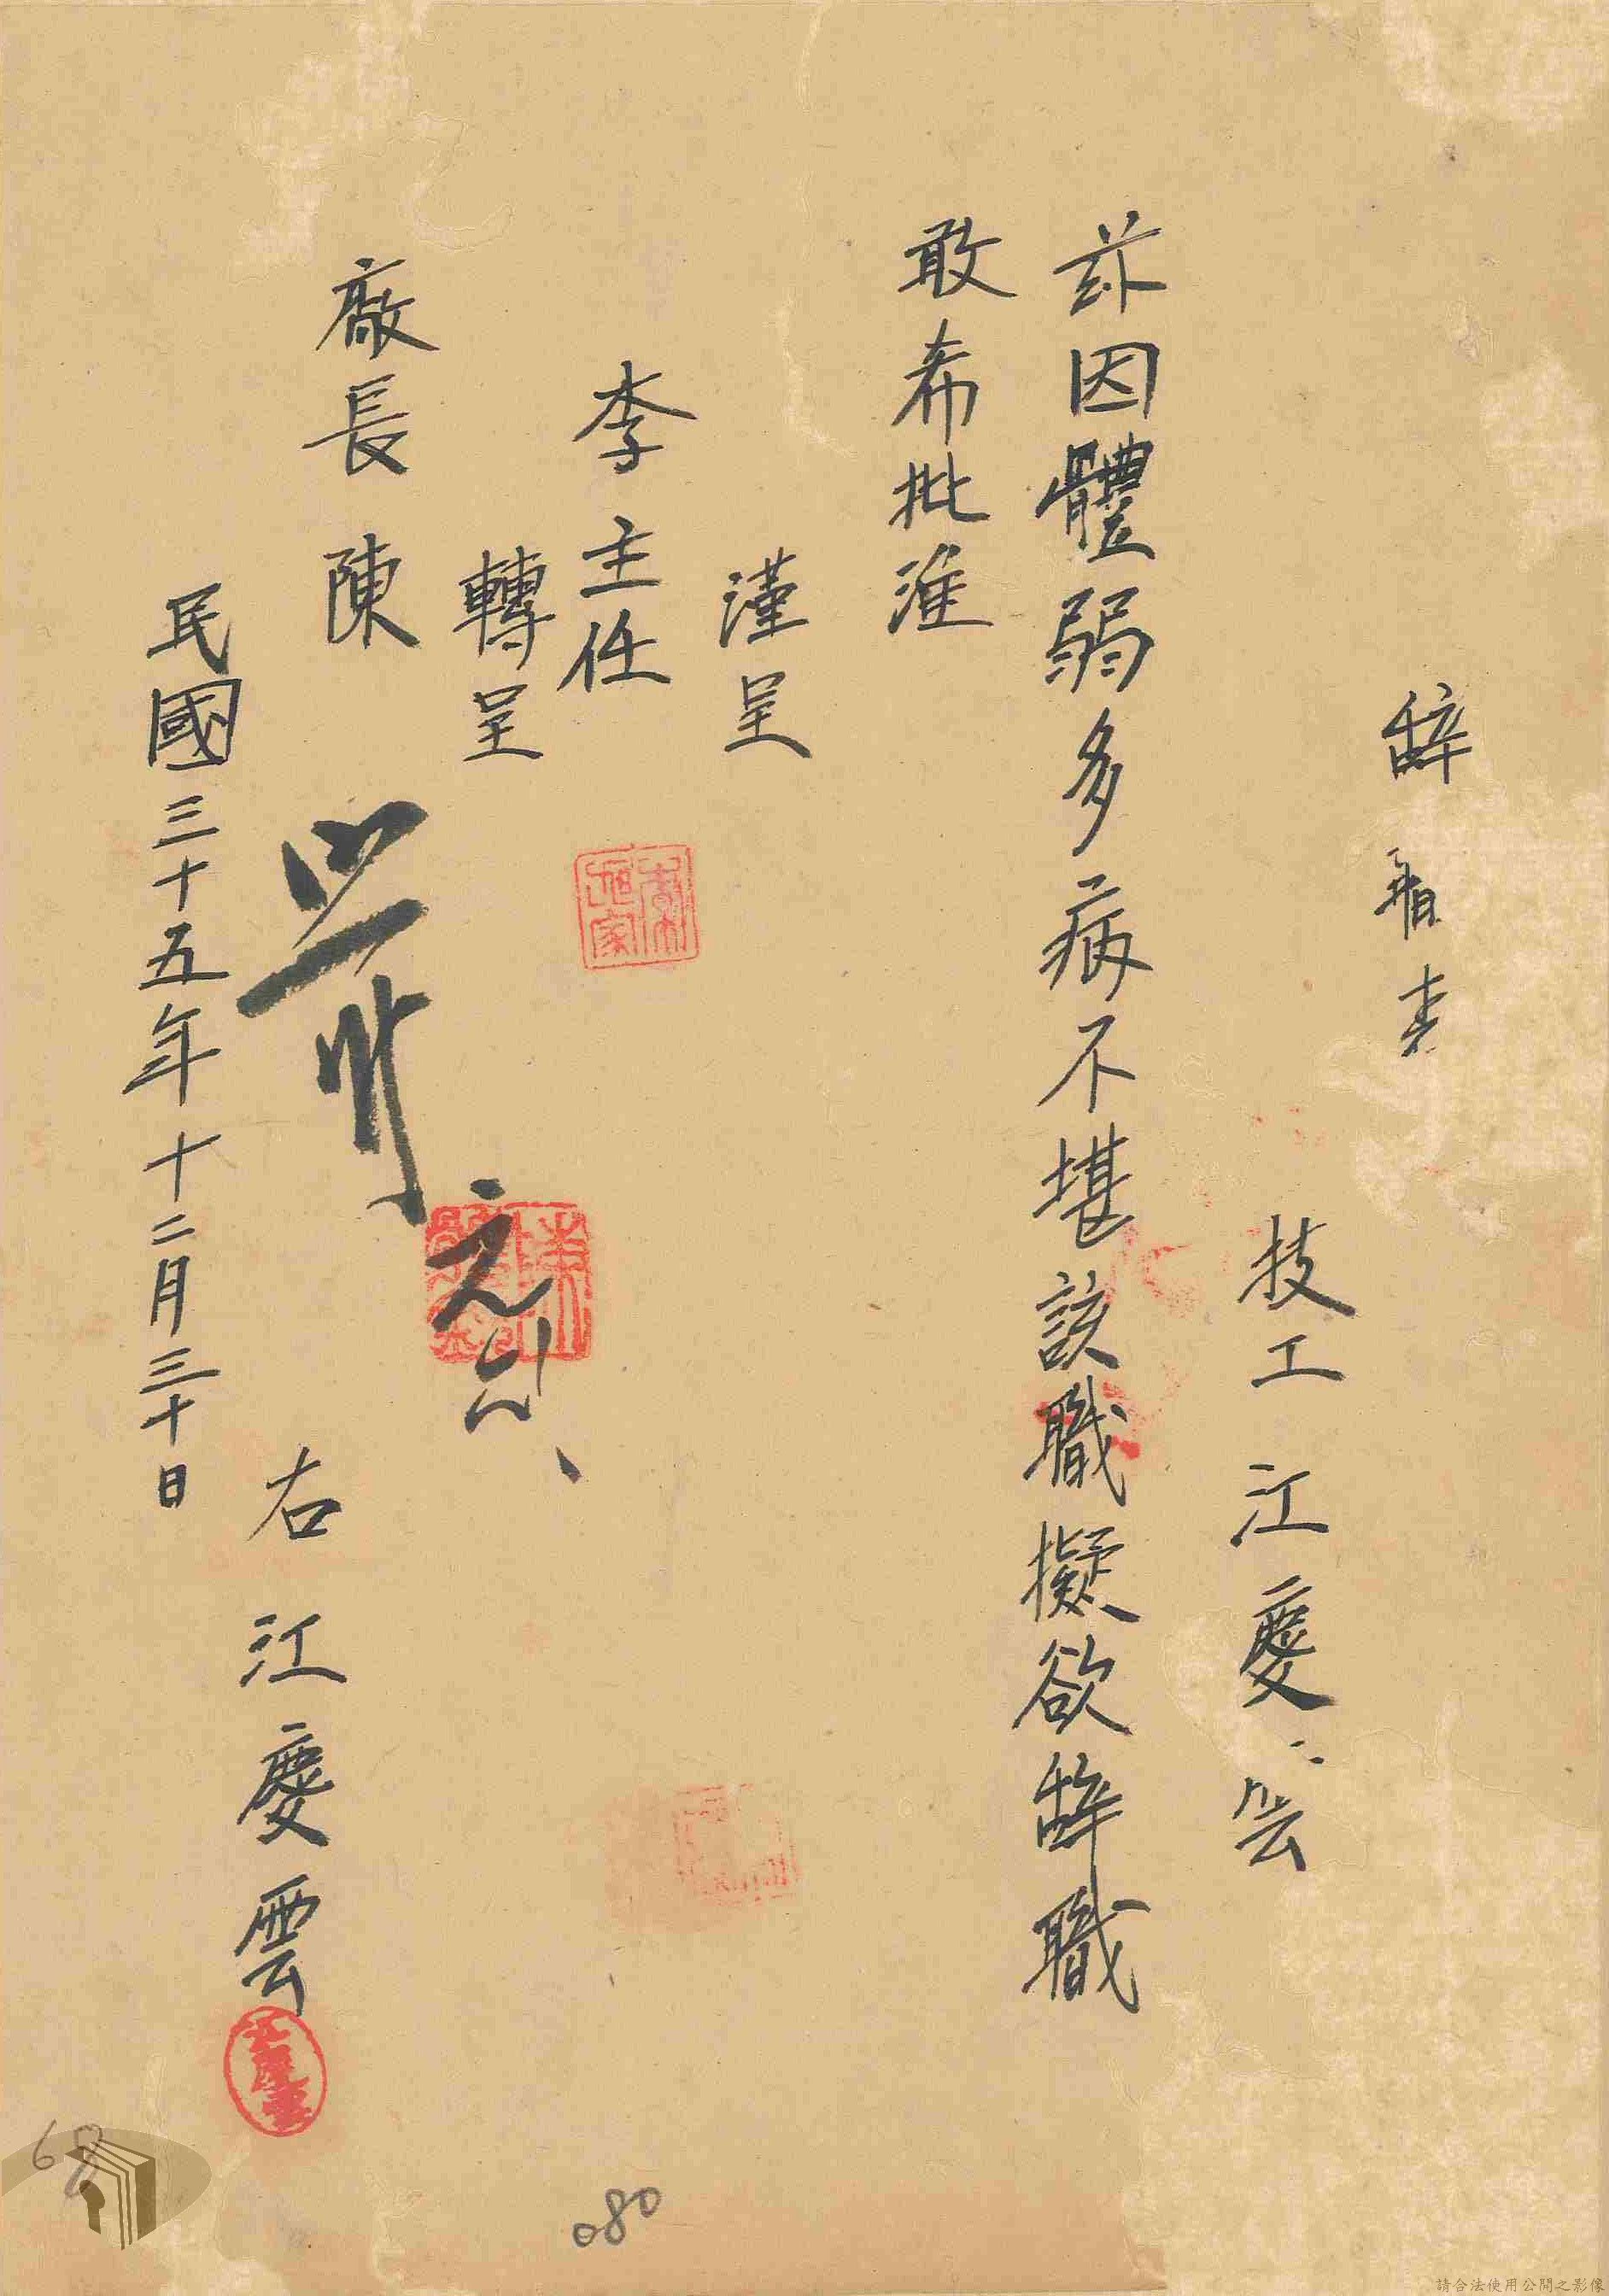 辭職書
技工 江慶雲
茲因體弱多病不堪該職擬欲辭職
敢希批准
謹呈
李主任
轉呈
廠長 陳
右 江慶雲
民國三十五年十二月三十日
68
080
請合法使用公開之影像